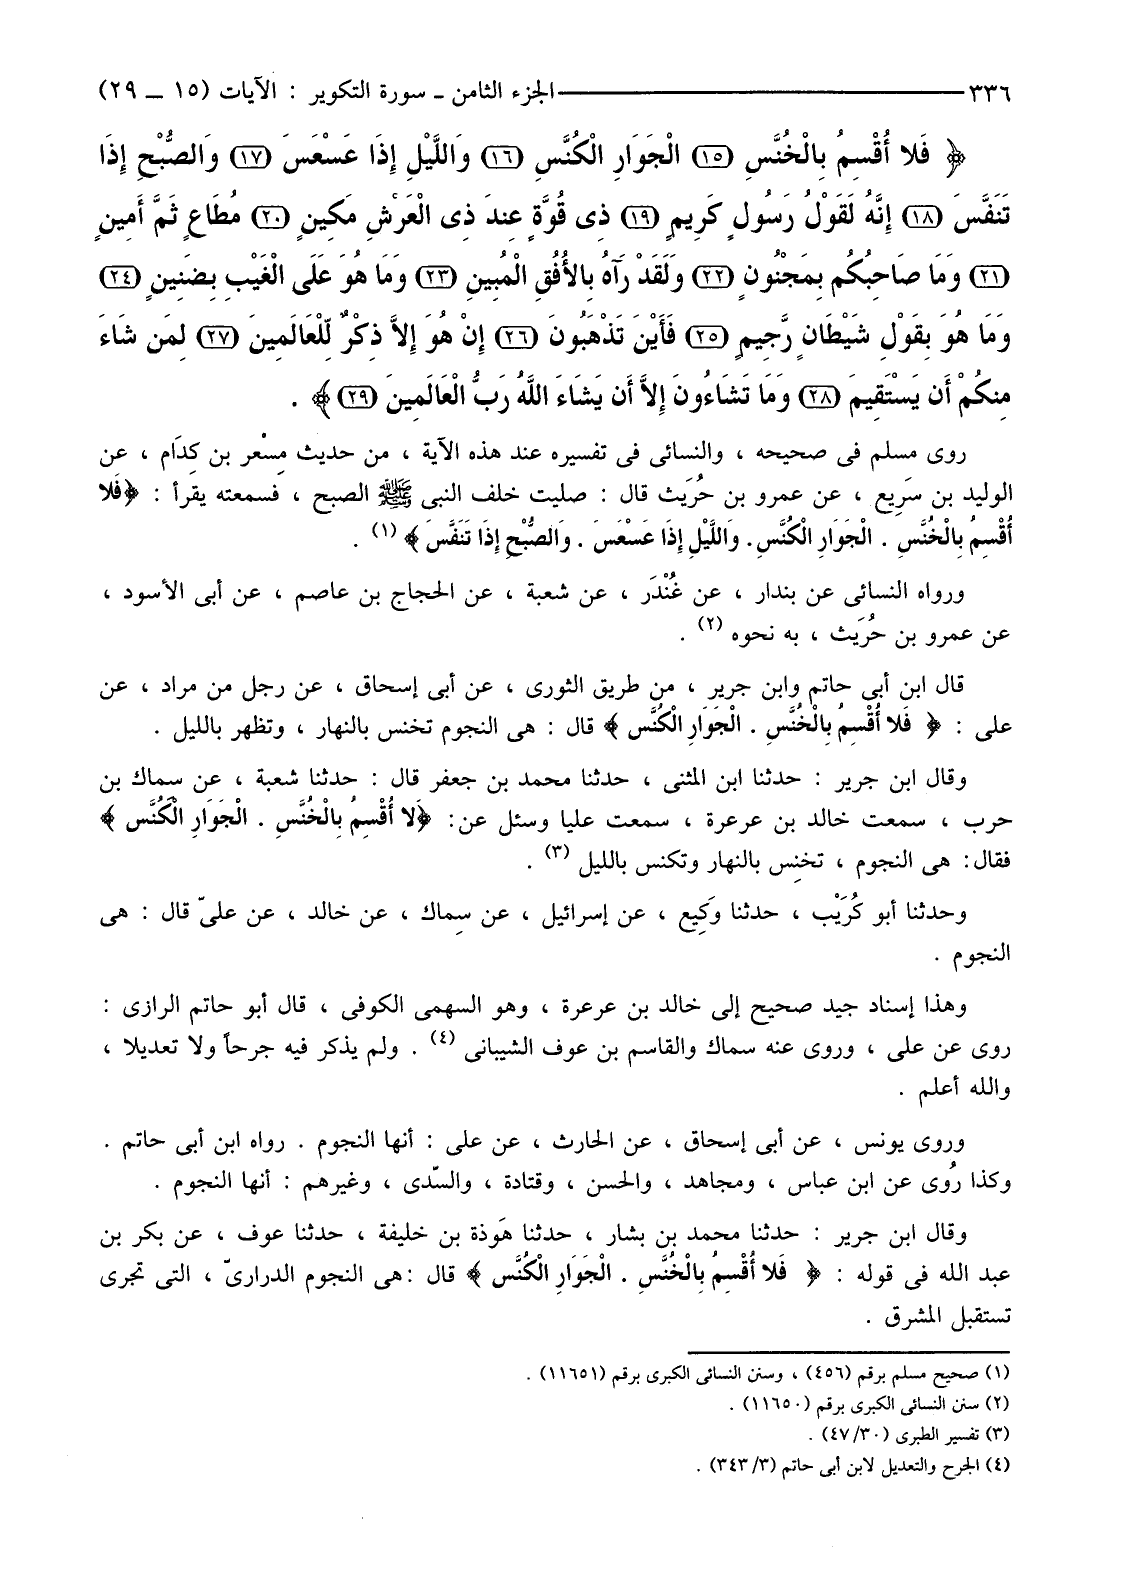 ٣٣٦ـــــــــــــــــــــ الجزء الثامن ـ سورة التكوير : الآيات (١٥ ــ ٢٩)
﴿ فَلا أُقْسِمُ بِالْخُنَّسِ (١٥) الْجَوَارِ الْكُنَّسِ (١٦) وَاللَّيْلِ إِذَا عَسْعَسَ (١٧) وَالصُّبْحِ إِذَا
تَنَفَّسَ (١٨) إِنَّهُ لَقَوْلُ رَسُولٍ كَرِيمٍ (١٩) ذِى قُوَّةٍ عِندَ ذِى الْعَرْشِ مَكِينٍ (٢٠) مُطَاعٍ ثَمَّ أَمِينٍ
(٢١) وَمَا صَاحِبُكُم بِمَجْنُونٍ (٢٢) وَلَقَدْ رَآهُ بِالأُفُقِ الْمُبِينِ (٢٣) وَمَا هُوَ عَلَى الْغَيْبِ بِضَنِينٍ (٢٤)
وَمَا هُوَ بِقَوْلِ شَيْطَانٍ رَّجِيمٍ (٢٥) فَأَيْنَ تَذْهَبُونَ (٢٦) إِنْ هُوَ إِلاَّ ذِكْرٌ لِّلْعَالَمِينَ (٢٧) لِمَن شَاءَ
مِنكُمْ أَن يَسْتَقِيمَ (٢٨) وَمَا تَشَاءُونَ إِلاَّ أَن يَشَاءَ اللَّهُ رَبُّ الْعَالَمِينَ (٢٩) ﴾ .
روى مسلم فى صحيحه ، والنسائى فى تفسيره عند هذه الآية ، من حديث مِسْعر بن كِدَام ، عن
الوليد بن سَرِيع ، عن عمرو بن حُرَيث قال : صليت خلف النبى ﷺ الصبح ، فسمعته يقرأ : ﴿فَلا
أُقْسِمُ بِالْخُنَّسِ . الْجَوَارِ الْكُنَّسِ. وَاللَّيْلِ إِذَا عَسْعَسَ . وَالصُّبْحِ إِذَا تَنَفَّسَ ﴾ (١) .
ورواه النسائى عن بندار ، عن غُنْدَر ، عن شعبة ، عن الحجاج بن عاصم ، عن أبى الأسود ،
عن عمرو بن حُرَيث ، به نحوه (٢) .
قال ابن أبى حاتم وابن جرير ، من طريق الثورى ، عن أبى إسحاق ، عن رجل من مراد ، عن
على : ﴿ فَلا أُقْسِمُ بِالْخُنَّسِ . الْجَوَارِ الْكُنَّسِ ﴾ قال : هى النجوم تخنس بالنهار ، وتظهر بالليل .
وقال ابن جرير : حدثنا ابن المثنى ، حدثنا محمد بن جعفر قال : حدثنا شعبة ، عن سماك بن
حرب ، سمعت خالد بن عرعرة ، سمعت عليا وسئل عن: ﴿لا أُقْسِمُ بِالْخُنَّسِ . الْجَوَارِ الْكُنَّسِ ﴾
فقال: هى النجوم ، تخنِس بالنهار وتكنس بالليل (٣) .
وحدثنا أبو كُرَيْب ، حدثنا وَكِيع ، عن إسرائيل ، عن سِماك ، عن خالد ، عن علىّ قال : هى
النجوم .
وهذا إسناد جيد صحيح إلى خالد بن عرعرة ، وهو السهمى الكوفى ، قال أبو حاتم الرازى :
روى عن على ، وروى عنه سماك والقاسم بن عوف الشيبانى (٤) . ولم يذكر فيه جرحاً ولا تعديلا ،
والله أعلم .
وروى يونس ، عن أبى إسحاق ، عن الحارث ، عن على : أنها النجوم . رواه ابن أبى حاتم .
وكذا رُوى عن ابن عباس ، ومجاهد ، والحسن ، وقتادة ، والسّدى ، وغيرهم : أنها النجوم .
وقال ابن جرير : حدثنا محمد بن بشار ، حدثنا هَوذة بن خليفة ، حدثنا عوف ، عن بكر بن
عبد الله فى قوله : ﴿ فَلا أُقْسِمُ بِالْخُنَّسِ . الْجَوَارِ الْكُنَّسِ ﴾ قال :هى النجوم الدرارىّ ، التى تجرى
تستقبل المشرق .
(١) صحيح مسلم برقم (٤٥٦) ، وسنن النسائى الكبرى برقم (١١٦٥١) .
(٢) سنن النسائى الكبرى برقم (١١٦٥٠) .
(٣) تفسير الطبرى (٤٧/٣٠) .
(٤) الجرح والتعديل لابن أبى حاتم (٣٤٣/٣) .